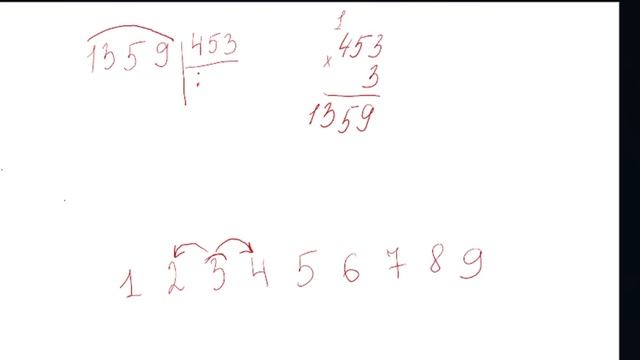 1359 453
:
1
453
x
3
1359
1 2 3 4 5 6 7 8 9